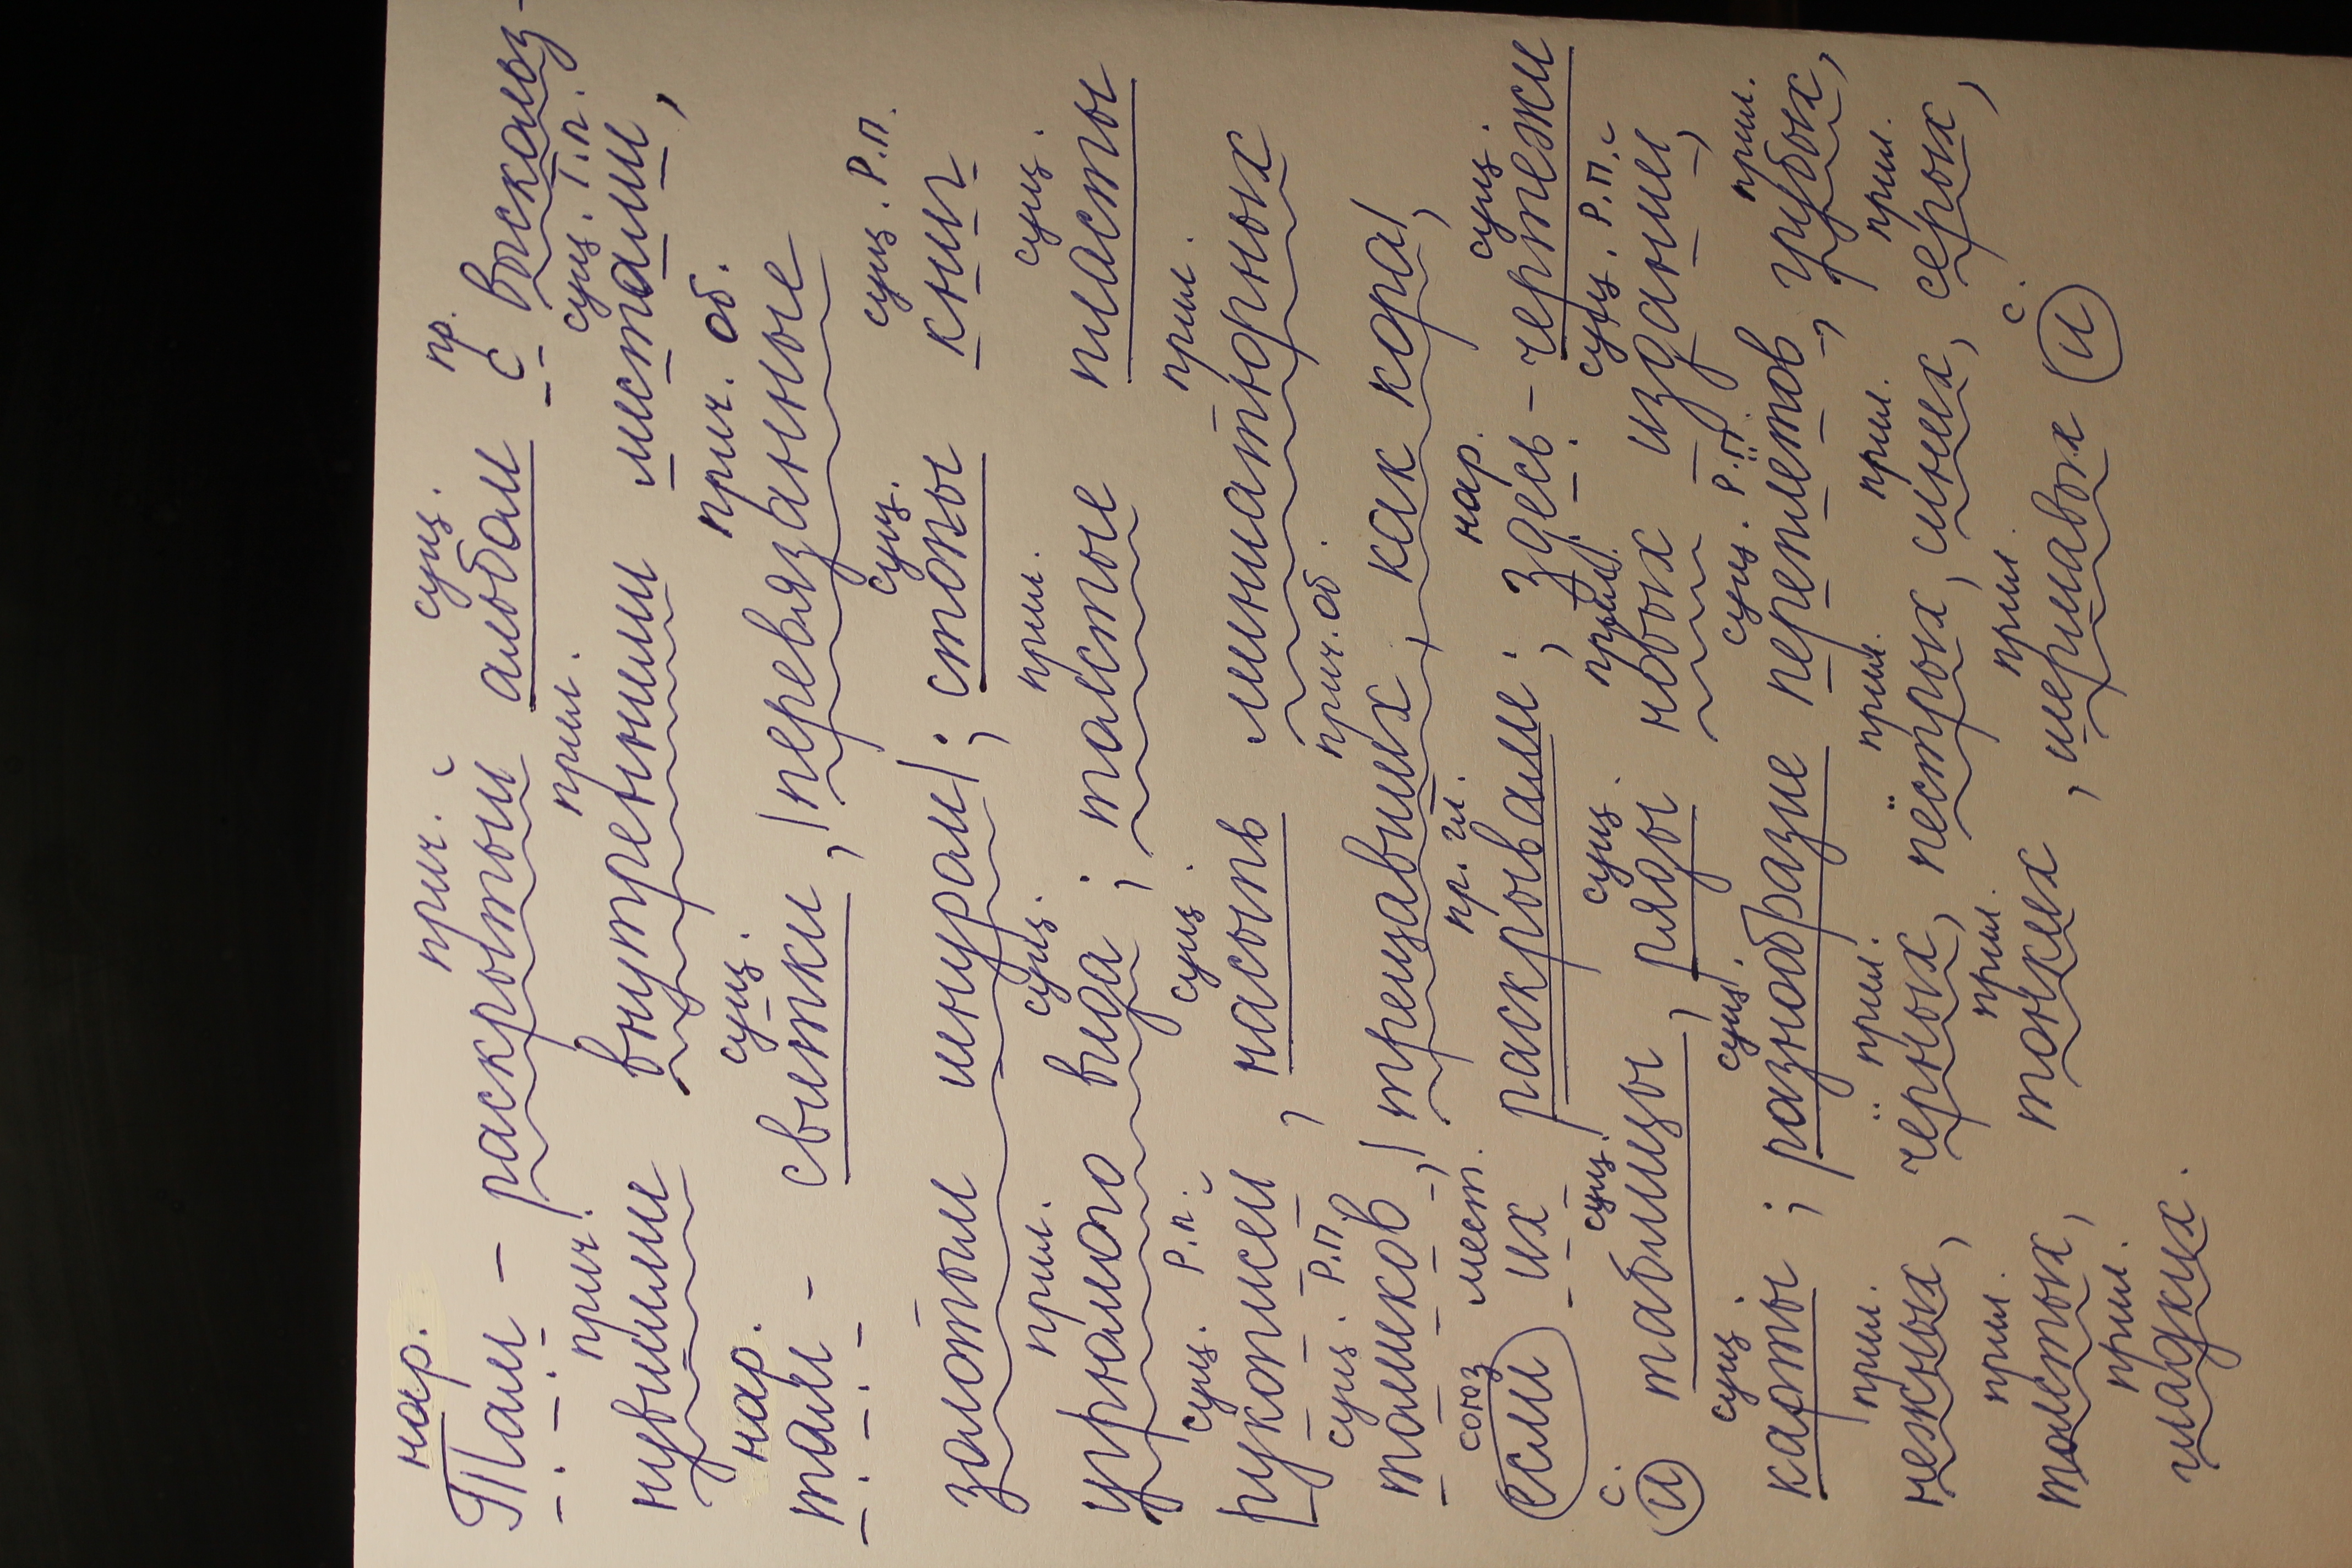 нар. прич. сущ. пр.
Там – раскрытый альбом с выскольз-
прич. прил. сущ. Т.п.
нувшими внутренними листами,
нар. сущ. прич. об.
там – свитки, |перевязанные
сущ. сущ. Р.п.
золотым шнуром|; стопы книг
прил. сущ. прил. сущ.
угрюмого вида; толстые пласты
сущ. Р.п. сущ. прил.
рукописей, насыпь миниатюрных
сущ. Р.п. прич. об.
томиков,| трещавших, как кора|,
союз мест. пр. гл. нар. сущ.
если их раскрывали; здесь – чертежи
с. сущ. сущ. прил. сущ. Р.п.
и таблицы, ряды новых изданий,
сущ. сущ. сущ. Р.п. прил.
карты; разнообразие переплётов, грубых,
прил. прил. прил. прил. прил.
нежных, чёрных, пёстрых, синих, серых,
прил. прил. прил. с.
толстых, тонких, шершавых и
прил.
гладких.